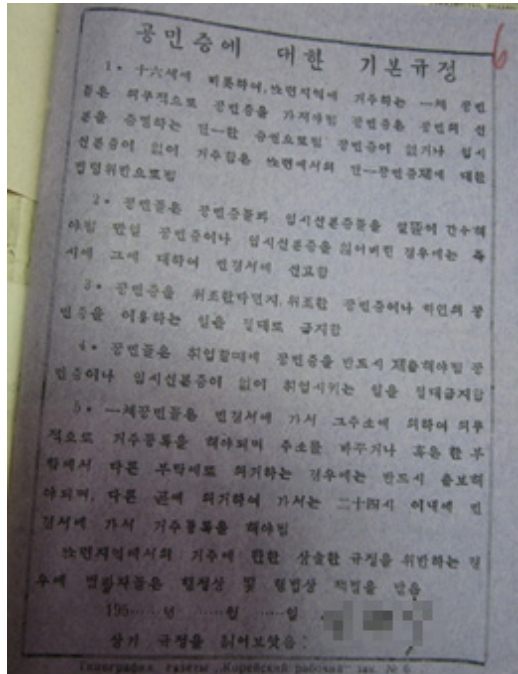 공민증에 대한 기본규정
6
1. 十六세에 비롯하여, 쏘련지역에 거주하는 一체 공민
들은 의무적으로 공민증을 가져야됨 공민증은 공민의 신
분을 증명하는 단一한 증편으로됨 공민증이 없거나 임시
신분증이 없이 거주킴은 쏘련에서의 단一공민증제에 대한
법령위반으로됨
2. 공민들은 공민증들과 임시신분증들을 잘 간수해
야됨 만일 공민증이나 임시신분증을 잃어버린 경우에는 즉
시에 그에 대하여 민경서에 선고함
3. 공민증을 위조한다던지, 위조한 공민증이나 타인의 공
민증을 이용하는 일을 절대로 금지함
4. 공민들은 취업할때에 공민증을 반드시 제출해야됨 공
민증이나 임시신분증이 없이 취업시키는 일을 절대금지함
5. 一체공민들은 민경서에 가서 그주소에 의하여 의무
적으로 거주등록을 해야되며 주소를 바꾸거나 혹은 한 부
락에서 다른 부락에로 의거하는 경우에는 반드시 출보해
야되며, 다른 곧에 의거하여 가서는 二十四시 이내에 민
경서에 가서 거주등록을 해야됨
쏘련지역에서의 거주에 관한 상술한 규정을 위반하는 경
우에 범죄자들은 행정상 및 형법상 책벌을 받음
195......년 ......월 ......일
상기 규정을 읽어보았음:
Типография газеты „Корейский рабочий" зак. № 6